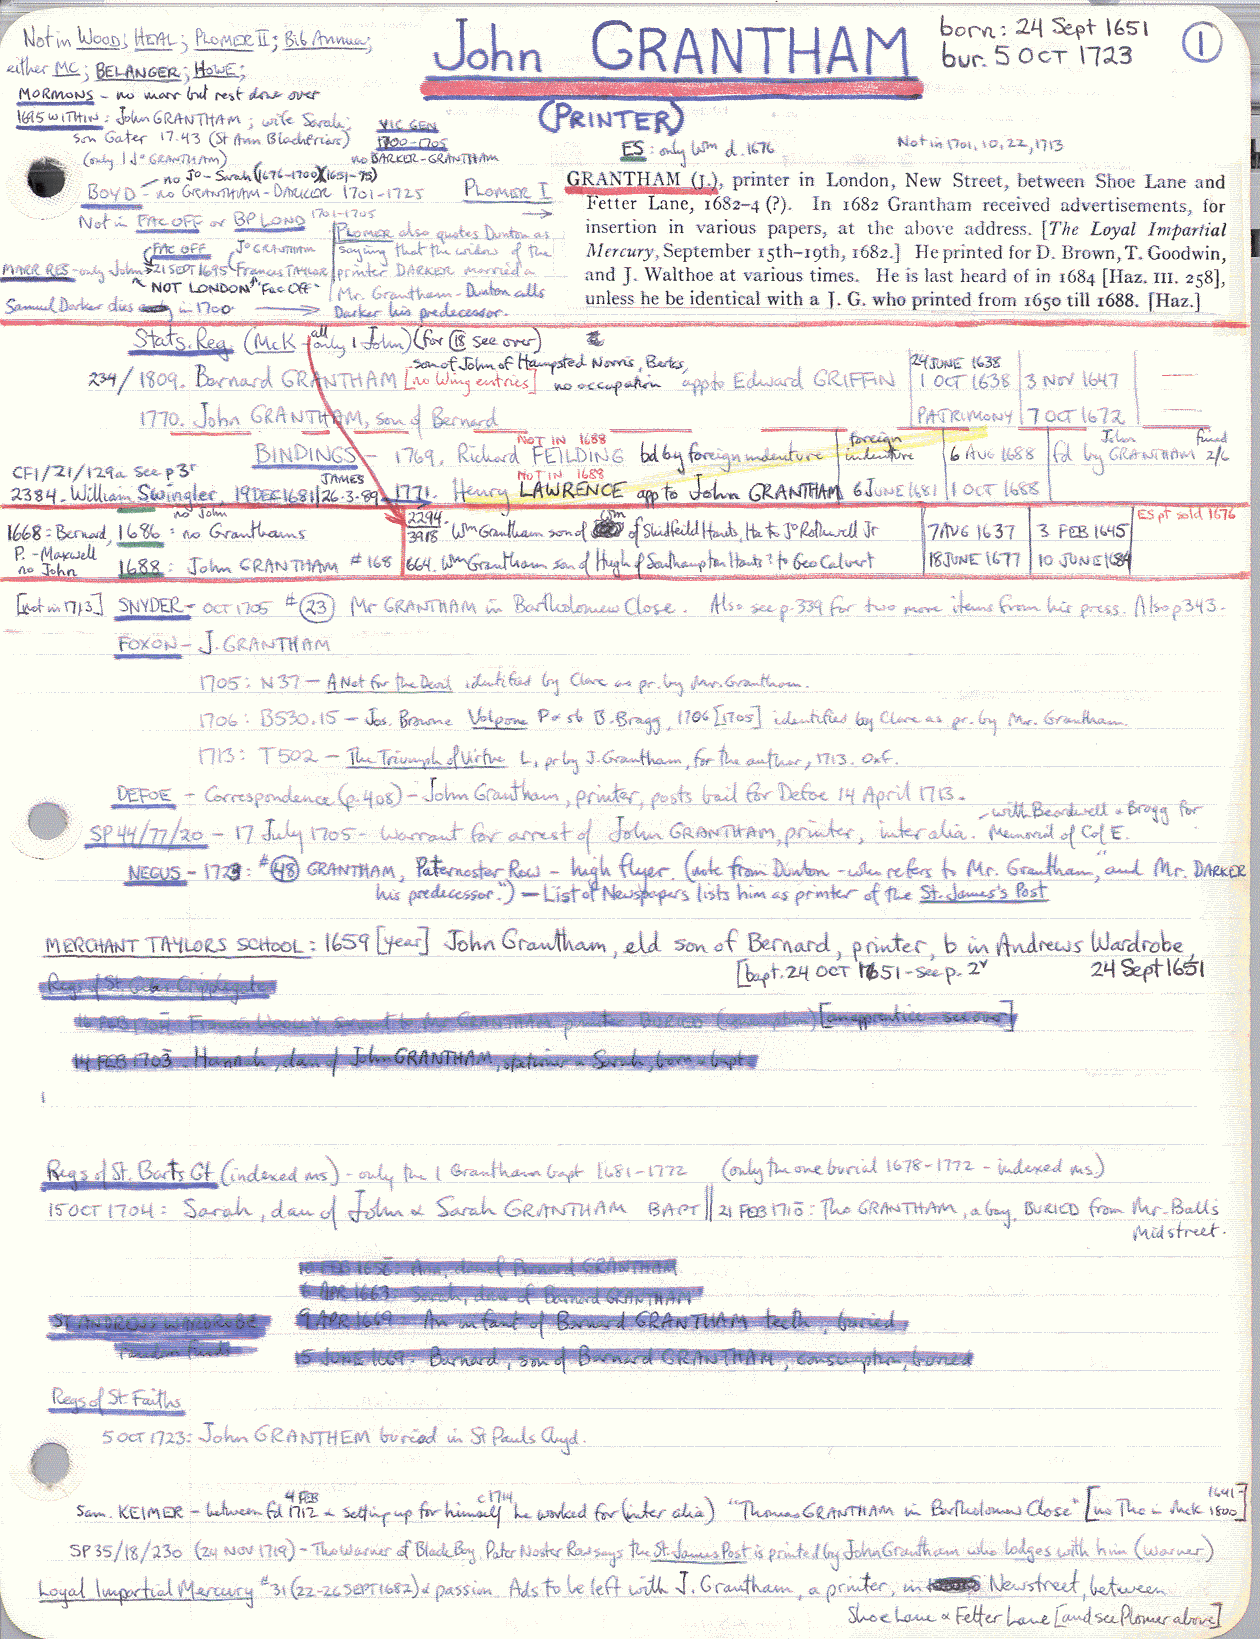 Not in WOOD; HEAL; PLOMER II; Bib Annua;
either MC; BELANGER; HOWE;
MORMONS - no marr but rest done over
1695 WITHIN: John GRANTHAM; wife Sarah;
son Gater 17.43 (St Ann Blackfriars)
(only 1 Jo GRANTHAM)
VIC GEN
1700-1705
no BARKER-GRANTHAM
John GRANTHAM
(PRINTER)
born: 24 Sept 1651
bur. 5 OCT 1723
1
ES: only Wm d. 1676
Not in 1701, 10, 22, 1713
no Jo-Sarah (1676-1700) (1651-75)
BOYD - no GRANTHAM-DARKER 1701-1725
Not in FAC OFF or BP LOND 1701-1705
FAC OFF
MARR RES - only John 21 SEPT 1695 Jo GRANTHAM Frances TAYLOR
NOT LONDON "Fac Off"
Samuel Darker dies in 1700
PLOMER I
PLOMER also quotes Dunton as
saying that the widow of the
printer DARKER married a
Mr. Grantham - Dunton calls
Darker his predecessor.
GRANTHAM (J.), printer in London, New Street, between Shoe Lane and
Fetter Lane, 1682-4 (?). In 1682 Grantham received advertisements, for
insertion in various papers, at the above address. [The Loyal Impartial
Mercury, September 15th-19th, 1682.] He printed for D. Brown, T. Goodwin,
and J. Walthoe at various times. He is last heard of in 1684 [Haz. III. 258],
unless he be identical with a J. G. who printed from 1650 till 1688. [Haz.]
Stats. Reg. (McK - all only 1 John) (for 18 see over)
son of John of Hampsted Norris, Berks,
234/1809. Barnard GRANTHAM [no Wing entries] no occupation app to Edward GRIFFIN
24 JUNE 1638
1 OCT 1638 3 NOV 1647
1770. John GRANTHAM, son of Bernard PATRIMONY 7 OCT 1672
NOT IN 1688
BINDINGS - 1769. Richard FEILDING bd by foreign indenture foreign indenture 6 AUG 1688 fd by John GRANTHAM fined 2/6
CF1/21/129a see p3r
NOT IN 1688
2384. William Swingler, 19 DEC 1681/JAMES 26-3-89 1771. Henry LAWRENCE app to John GRANTHAM 6 JUNE 1681 1 OCT 1688
no John
1668: Bernad, 1686: no Granthams
P. - Maxwell
no John
1688: John GRANTHAM #168
ES pt sold 1676
2294 3918 Wm Grantham son of Wm of Hants, Ha to Jo Rothwell Jr 7 AUG 1637 3 FEB 1645
664. Wm Grantham son of Hugh of Southampton Hants? to Geo Calvert 18 JUNE 1677 10 JUNE 1684
[not in 1713] SNYDER - OCT 1705 #23 Mr GRANTHAM in Bartholomew Close. Also see p.339 for two more items from his press. Also p343.
FOXON - J. GRANTHAM
1705: N37 - A Net for the Devil identified by Clare as pr. by Mr. Grantham.
1706: B530.15 - Jos. Browne Volpone P & sb B. Bragg, 1706 [1705] identified by Clare as pr. by Mr. Grantham.
1713: T502 - The Triumph of Virtue L, pr by J. Grantham, for the author, 1713. Oxf.
DEFOE - Correspondence (p.408) - John Grantham, printer, posts bail for Defoe 14 April 1713.
SP 44/77/20 - 17 July 1705 - Warrant for arrest of John GRANTHAM, printer, inter alia. with Beardwell & Bragg for Memorial of C of E.
NEGUS - 1723: #48 GRANTHAM, Paternoster Row - high flyer. (note from Dunton - who refers to "Mr. Grantham," and Mr. DARKER
his predecessor.") - List of Newspapers lists him as printer of the St. James's Post
MERCHANT TAYLORS SCHOOL: 1659 [year] John Grantham, eld son of Bernard, printer, b in Andrews Wardrobe,
[bapt. 24 OCT 1651 - see p. 2v 24 Sept 1651
Regs of St. Giles Cripplegate
16 FEB 1704 Francis WOOLEY, servant to GRANTHAM printer BURIED (consumption) [an apprentice - see over]
14 FEB 1703. Hannah, dau of John GRANTHAM, stationer & Sarah, born & bapt
Regs of St. Barts Gt (indexed ms) - only the 1 Grantham bapt 1681-1772 (only the one burial 1678-1772 - indexed ms.)
15 OCT 1704: Sarah, dau of John & Sarah GRANTHAM BAPT || 21 FEB 1715: Tho GRANTHAM, a boy, BURIED from Mr. Balls
Midstreet.
10 FEB 1658: Ann, dau of Bernard GRANTHAM
6 APR 1663: Sarah, dau of Bernard GRANTHAM
ST ANDREWS WARDROBE 9 APR 1669 - An infant of Barnard GRANTHAM teeth, buried
15 JUNE 1669 - Barnard, son of Barnard GRANTHAM, consumption, buried
Regs of St. Faiths
5 OCT 1723: John GRANTHEM buried in St Pauls Chyd.
Sam. KEIMER - between fd 4 FEB 1712 & setting up for himself c1714 he worked for (inter alia) "Thomas GRANTHAM in Bartholomew Close" [no Tho in McK 1641-1800]
SP 35/18/230 (24 NOV 1719) - Tho Warner of Black Boy, Pater Noster Row says the St. James Post is printed by John Grantham who lodges with him (Warner)
Loyal Impartial Mercury #31 (22-26 SEPT 1682) & passion. Ads to be left with J. Grantham, a printer, in Newstreet, between
Shoe Lane & Fetter Lane [and see Plomer above]